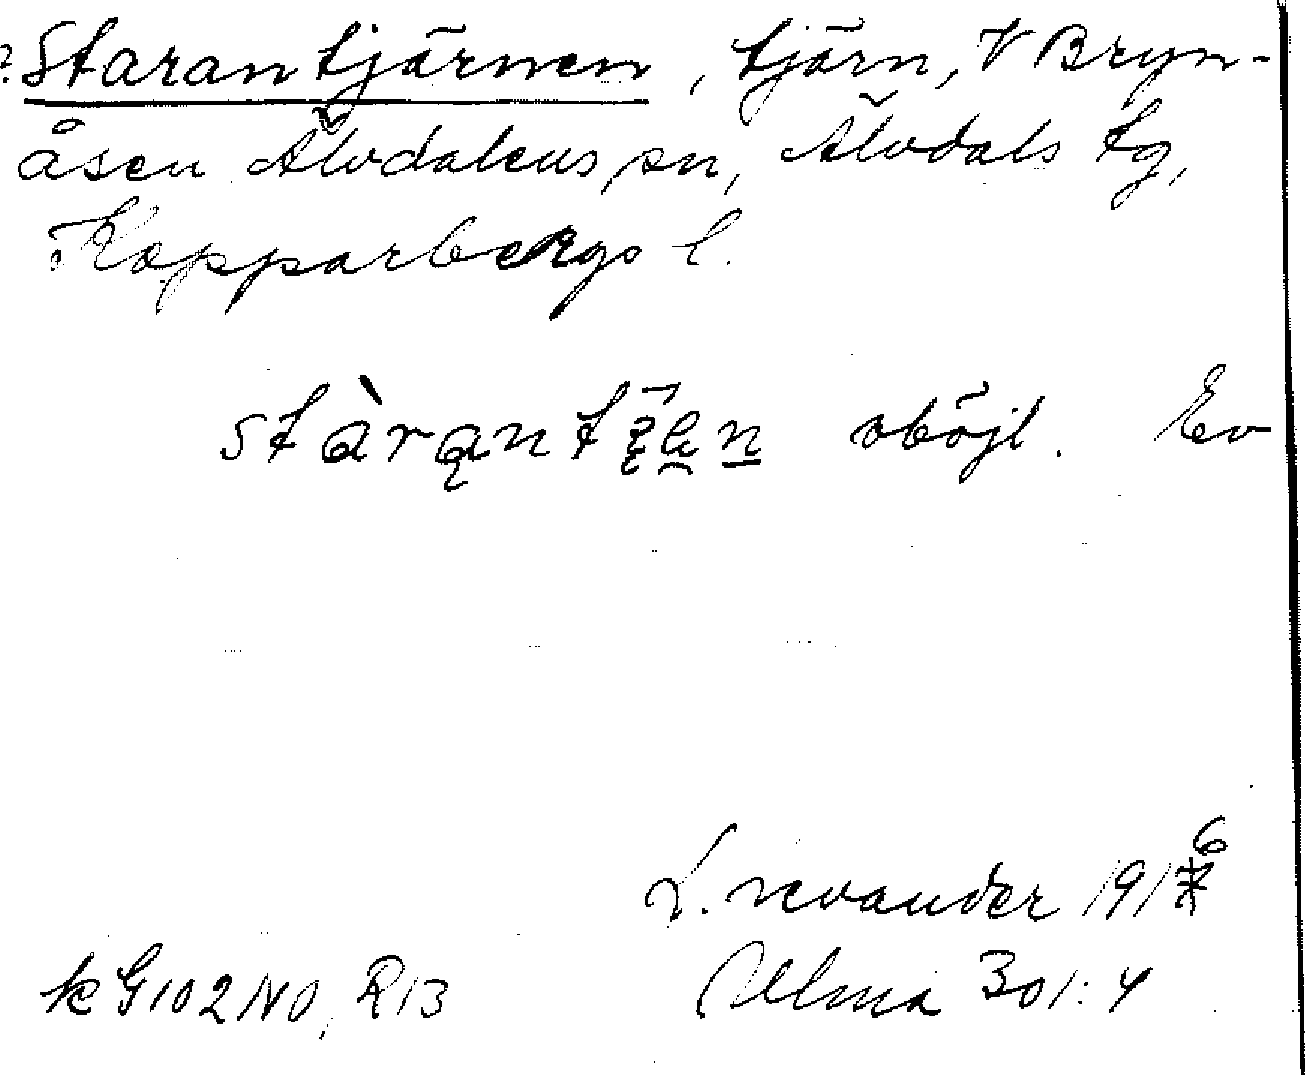 ?. Starantjärnen, tjärn, V Bryn-
åsen Älvdalens sn, Älvdals tg,
Kopparbergs l.
oböjl. Ev
L. Levander 1916
kG102NO, R13 Ulma 301:4